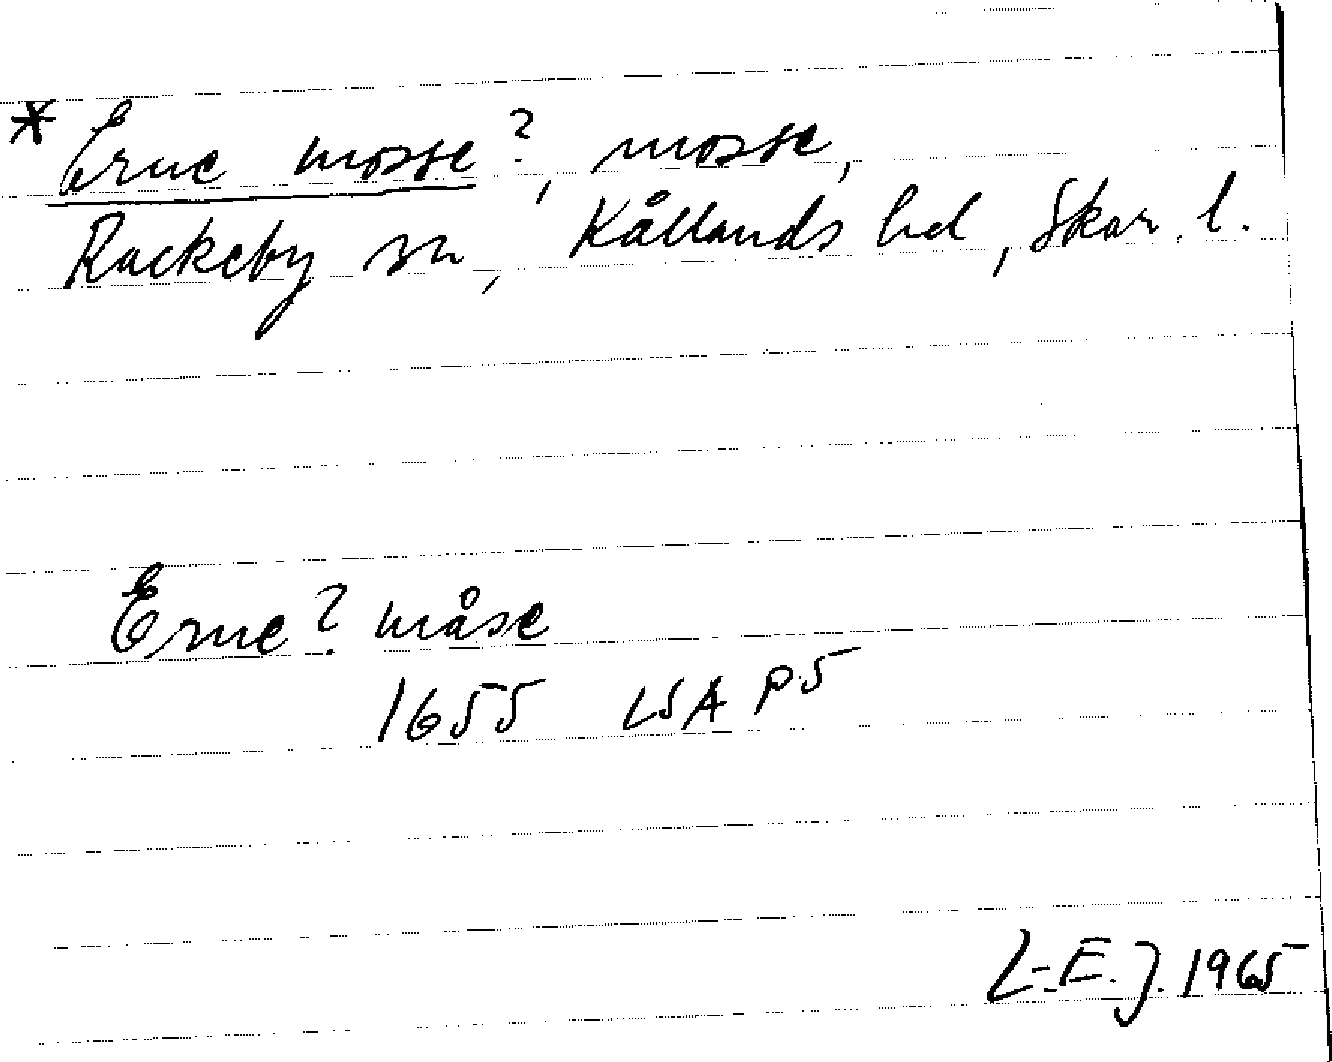 * Erne mosse?, mosse,
Rackeby sn, Kållands hd, Skar. l.
Erne? måse
1655 LSA P5
L-E. J. 1965